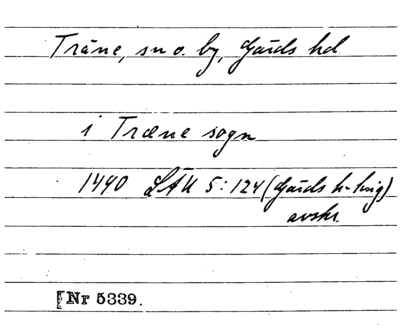 Träne, sn o. by, Gärds hd
i Træne sogn
1490 LÄU 5:124 (Gärds h-ting)
avskr.
[Nr 5339.